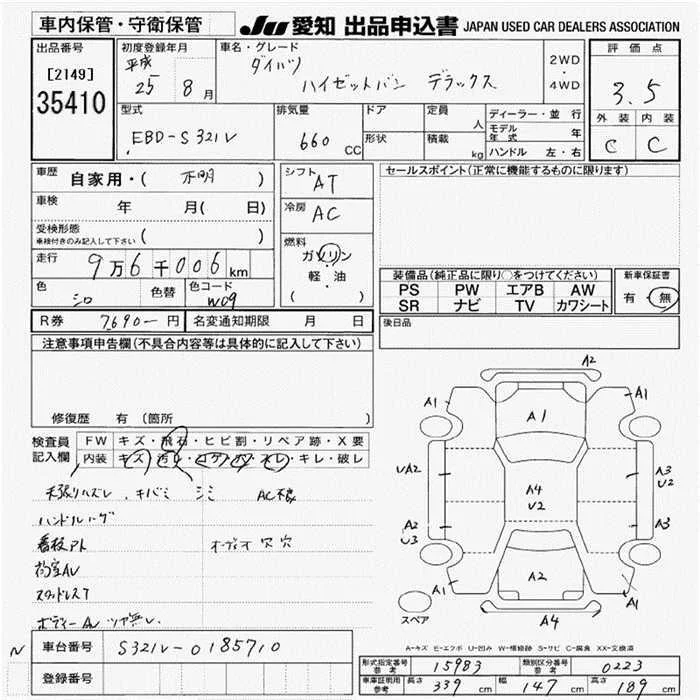 車内保管・守衛保管
JU 愛知 出品申込書 JAPAN USED CAR DEALERS ASSOCIATION
出品番号
[2149]
35410
初度登録年月
平成
25 8 月
車名・グレード
ダイハツ
ハイゼットバン デラックス
2WD
・
4WD
評価点
3.5
外装 内装
C C
型式
EBD-S321V
排気量
660 CC
ドア
形状
定員 人
積載 kg
ディーラー・並行
モデル年式 年
ハンドル 左・右
車歴
自家用・( 不明 )
車検 年 月( 日)
受検形態
車検付きのみ記入して下さい ( )
走行 9万6千006km
色 シロ
色替
色コード W09
シフト AT
冷房 AC
燃料
ガソリン
軽・油
( )
セールスポイント(正常に機能するものに限ります)
装備品(純正品に限り○をつけてください)
PS PW エアB AW
SR ナビ TV カワシート
新車保証書
有・無
後日品
R券 7690- 円 名変通知期限 月 日
注意事項申告欄(不具合内容等は具体的に記入して下さい)
修復歴 有 (箇所 )
検査員
記入欄
FW キズ・飛石・ヒビ割・リペア跡・X要
内装 キズ・汚レ・コゲ・穴・スレ・キレ・破レ
キバミ シミ AC不良
看板アト オーディオ穴
荷室AU
スタッドレスT
A2
A1 A1
A1
UA2
A4
U2
A3
U2
A2
U3
A3
A2
A1 A1
A4
スペア
A-キズ E-エクボ U-凹み W-補修跡 S-サビ C-腐食 XX-交換済
N
車台番号 S321V-0185710
登録番号
形式指定番号 参考 15983
類別区分番号 参考 0223
車庫証明用 参考 長さ 339 cm 幅 147 cm 高さ 189 cm